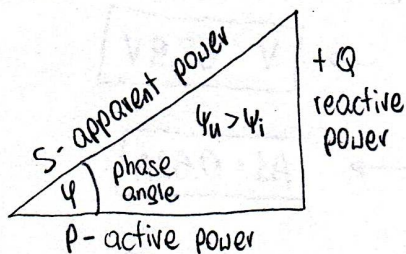 S- apparent power
+Q
reactive
power
ψu > ψi
phase
angle
φ
P- active power